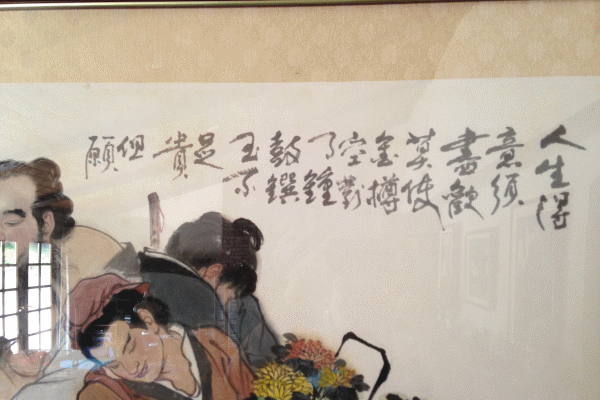 人生得
意須
盡歡
莫使
金樽
空對
月鐘
鼓饌
玉不
足
貴
但
願